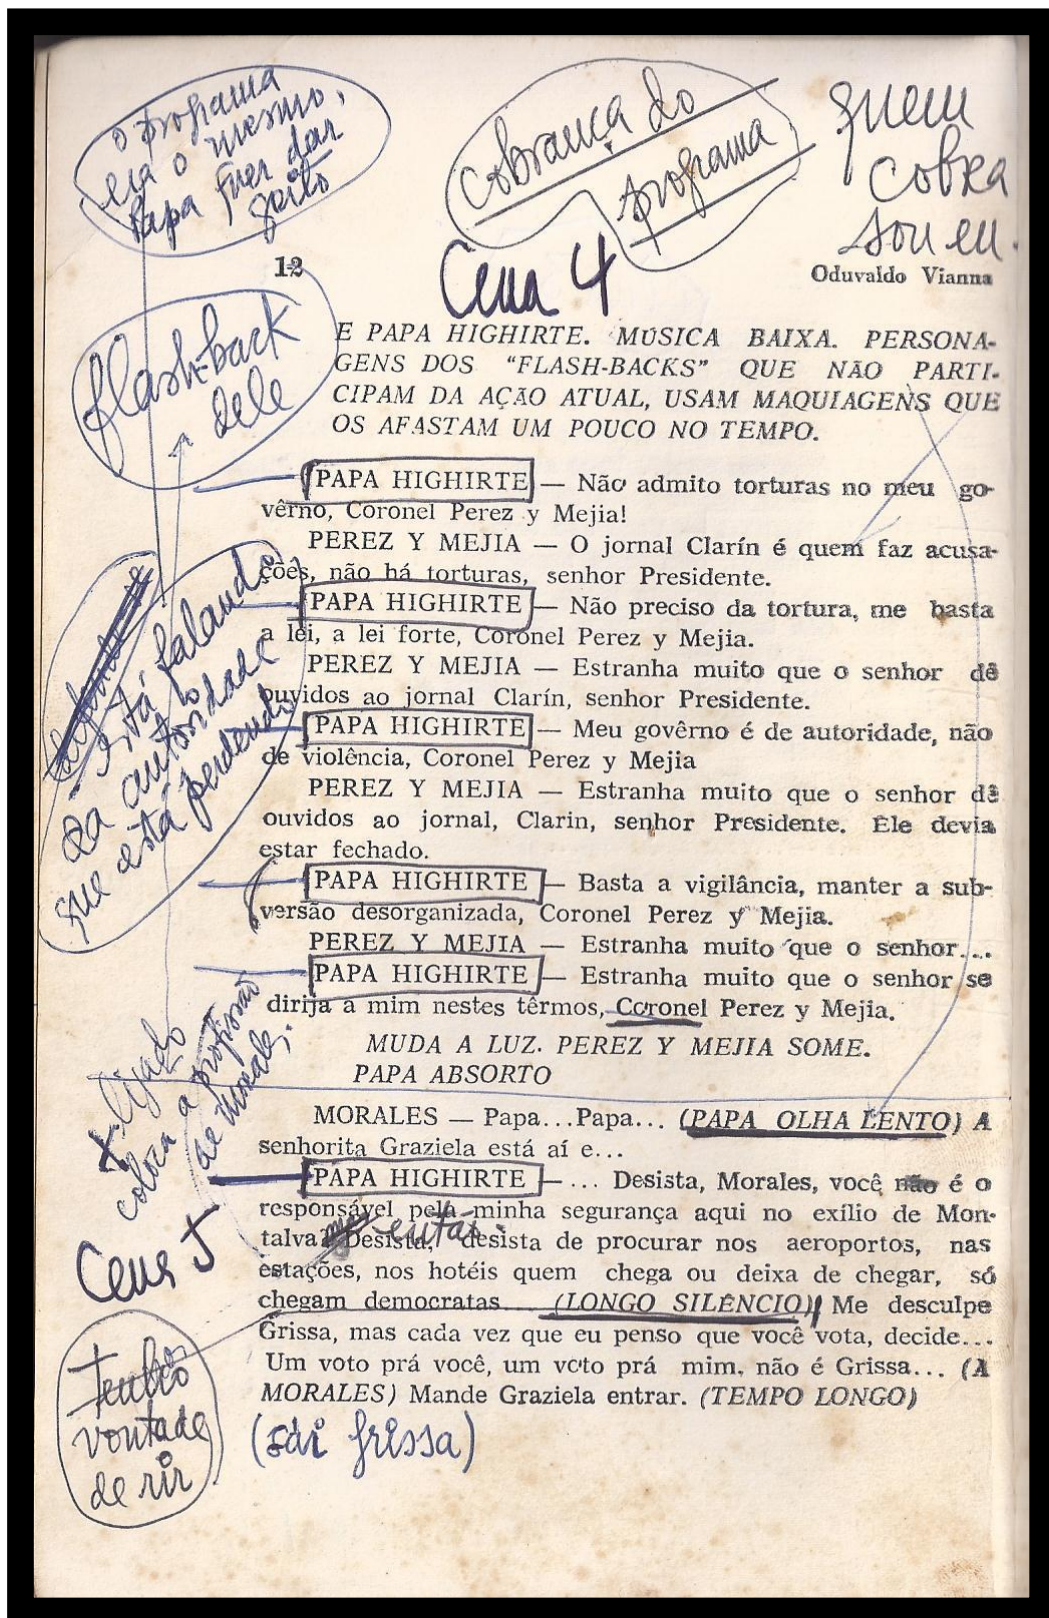 o programa
era o mesmo,
Papa quer dar
jeito
Cobrança do
programa
quem
cobra
sou eu.
12
Cena 4
Oduvaldo Vianna
flash-back
dele
E PAPA HIGHIRTE. MÚSICA BAIXA. PERSONA-
GENS DOS "FLASH-BACKS" QUE NÃO PARTI-
CIPAM DA AÇÃO ATUAL, USAM MAQUIAGENS QUE
OS AFASTAM UM POUCO NO TEMPO.
PAPA HIGHIRTE — Não admito torturas no meu go-
vêrno, Coronel Perez y Mejia!
PEREZ Y MEJIA — O jornal Clarín é quem faz acusa-
ções, não há torturas, senhor Presidente.
PAPA HIGHIRTE — Não preciso da tortura, me basta
a lei, a lei forte, Coronel Perez y Mejia.
PEREZ Y MEJIA — Estranha muito que o senhor dê
ouvidos ao jornal Clarín, senhor Presidente.
PAPA HIGHIRTE — Meu govêrno é de autoridade, não
de violência, Coronel Perez y Mejia
PEREZ Y MEJIA — Estranha muito que o senhor dê
ouvidos ao jornal, Clarin, senhor Presidente. Ele devia
estar fechado.
PAPA HIGHIRTE — Basta a vigilância, manter a sub-
versão desorganizada, Coronel Perez y Mejia.
PEREZ Y MEJIA — Estranha muito que o senhor...
PAPA HIGHIRTE — Estranha muito que o senhor se
dirija a mim nestes têrmos, Coronel Perez y Mejia.
está falando
da autoridade
que está perdendo
MUDA A LUZ. PEREZ Y MEJIA SOME.
PAPA ABSORTO
ligado
coloca a profissão
de Morales.
MORALES — Papa...Papa... (PAPA OLHA LENTO) A
senhorita Graziela está aí e...
PAPA HIGHIRTE — ... Desista, Morales, você não é o
responsável pela minha segurança aqui no exílio de Mon-
talva? Desista, então desista de procurar nos aeroportos, nas
estações, nos hotéis quem chega ou deixa de chegar, só
chegam democratas (LONGO SILÊNCIO) Me desculpe
Grissa, mas cada vez que eu penso que você vota, decide...
Um voto prá você, um voto prá mim, não é Grissa... (A
MORALES) Mande Graziela entrar. (TEMPO LONGO)
Cena 5
Tenho
vontade
de rir
(Sai Grissa)